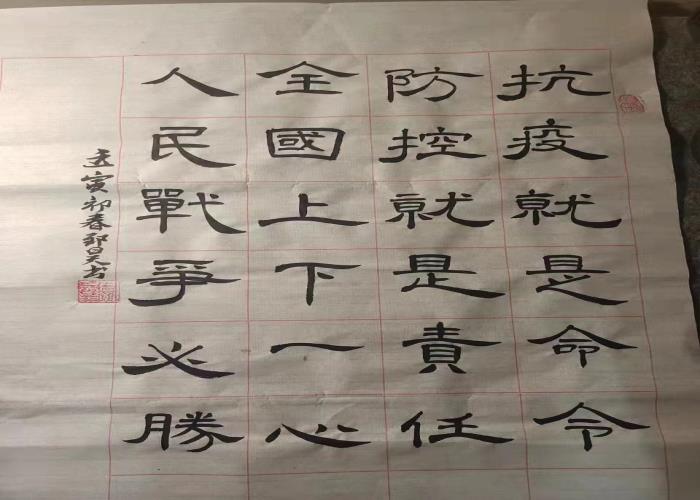 抗疫就是命令
防控就是責任
全國上下一心
人民戰爭必勝
寅初春邵昊天书